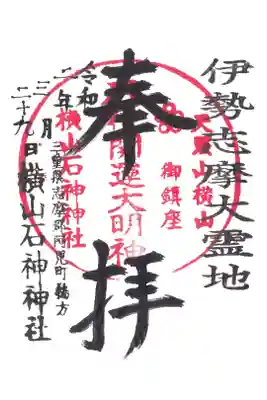 伊勢志摩大霊地
天聖山横山
御鎮座
開運大明神
横山石神神社
奉拝
三重県志摩郡阿児町鵜方
令和二年三月二十九日
横山石神神社